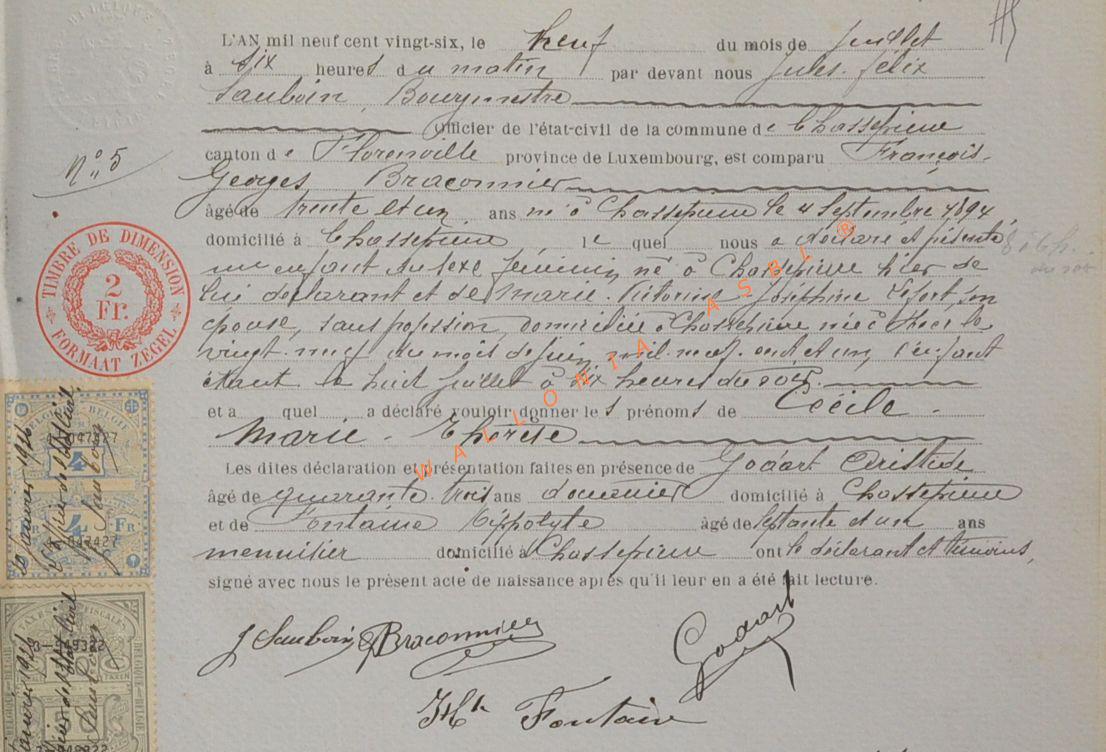 L'AN mil neuf cent vingt-six, le neuf du mois de Juillet
à six heures du matin par devant nous Jules. Félix
Sauboin, Bourgmestre
Officier de l'état-civil de la commune de Chassepierre
canton de Florenville province de Luxembourg, est comparu François-
N° 5
Georges Braconnier
âgé de trente et un ans né à Chassepierre le 4 Septembre 1894
domicilié à Chassepierre le quel nous a déclaré et présenté
un enfant du sexe féminin, né à Chassepierre hier de
lui déclarant et de Marie. Victorine Joséphine Lefort, son
épouse, sans profession, domiciliée à Chassepierre née à le
vingt-neuf du mois de juin mil neuf cent et un, l'enfant
étant né le huit Juillet à six heures du soir.
et a quel a déclaré vouloir donner les prénoms de Cécile -
Marie - Thérèse
Les dites déclaration et présentation faites en présence de Godart Aristide
âgé de quarante-trois ans douanier domicilié à Chassepierre
et de Fontaine Hippolyte âgé de septante et un ans
menuisier domicilié à Chassepierre ont le déclarant et témoins,
signé avec nous le présent acte de naissance après qu'il leur en a été fait lecture.
J Sauboin G Braconnier Godart
Hte Fontaine
TIMBRE DE DIMENSION
2
Fr.
FORMAAT ZEGEL
4
FR
4
FR
WALLONIA ASBL ®